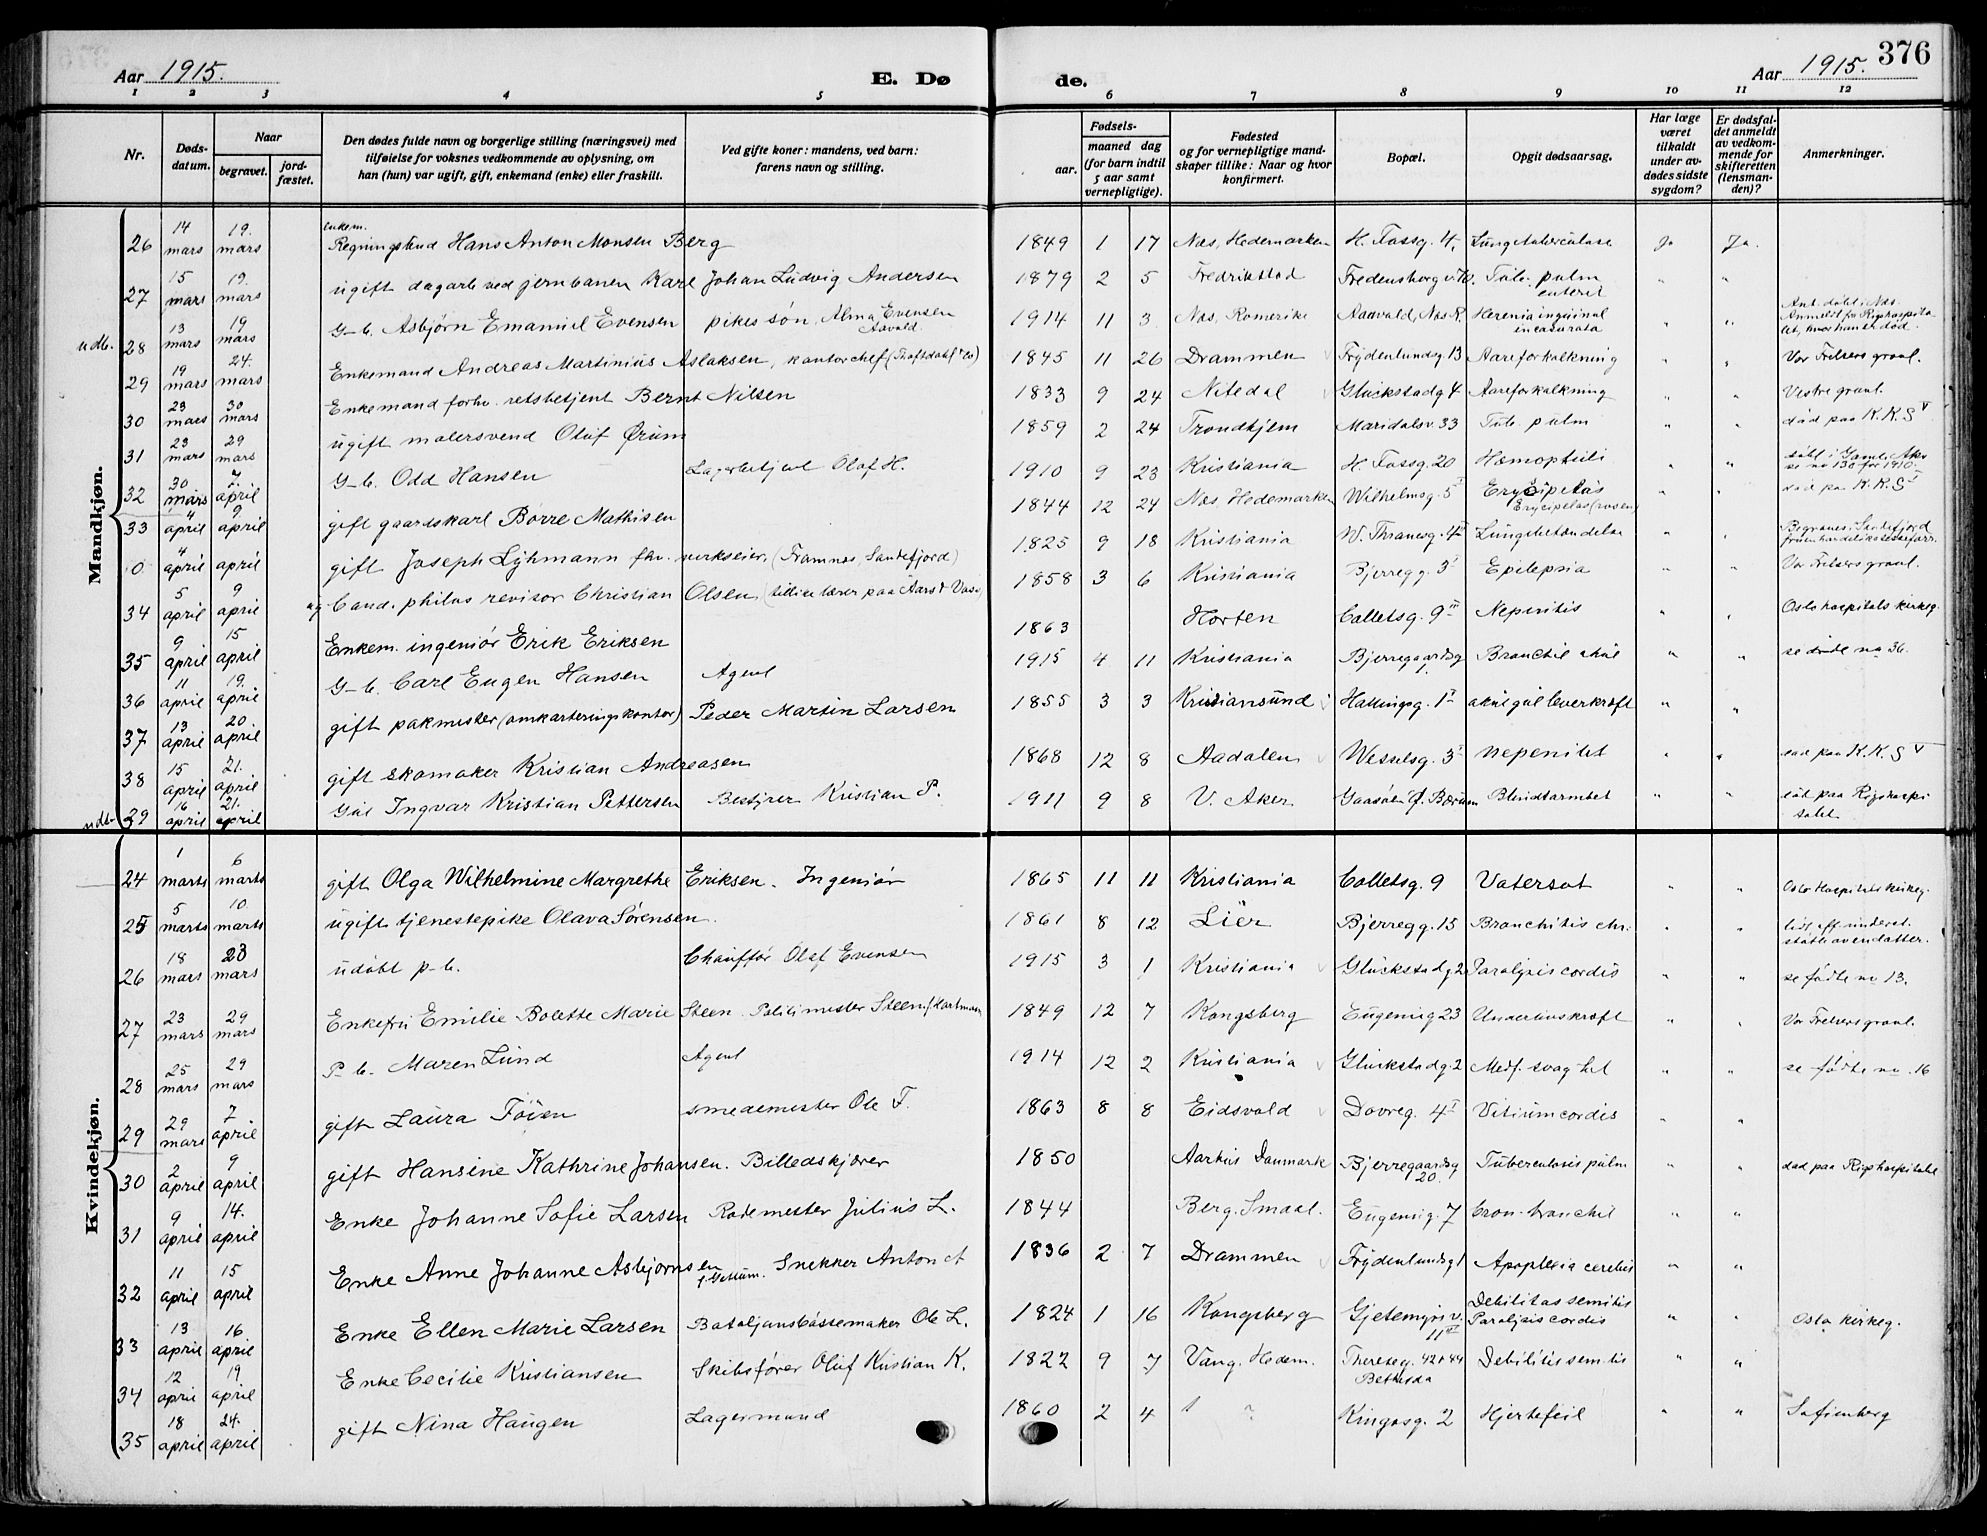 Aar 1915. E. Døde. Aar 1915. 376
1 2 3 4 5 6 7 8 9 10 11 12
Nr. Dødsdatum. Naar begravet. jordfæstet. Den dødes fulde navn og borgerlige stilling (næringsvei) med tilføielse for voksnes vedkommende av oplysning, om han (hun) var ugift, gift, enkemand (enke) eller fraskilt. Ved gifte koner: mandens, ved barn: farens navn og stilling. Fødsels- aar. maaned dag (for barn indtil 5 aar samt vernepligtige). Fødested og for vernepligtige mandskaper tillike: Naar og hvor konfirmert. Bopæl. Opgit dødsaarsag. Har læge været tilkaldt under avdødes sidste sygdom? Er dødsfaldet anmeldt av vedkommende for skifteretten (lensmanden)? Anmerkninger.
Mandkjøn.
26 14 mars 19. mars enkem. Hans Anton Monsen Berg 1849 1 17 Næs, Hedemarken H. Fossg. 4, Lungetuberculose Ja Ja.
27 15 mars 19. mars ugift dagarb ved jernbanen Karl Johan Ludvig Andersen 1879 2 5 Fredrikstad Tub. pulm enterit " "
udb. 28 13 mars 19 mars G-b. Asbjørn Emanuel Evensen pikes søn, Alma Evensen Aavald 1914 11 3 Næs, Romerike Aaavald, Næs R. inguinal " "
29 19 mars 24. mars Enkemand Andreas Martinius Aslaksen, kontorchef 1845 11 26 Drammen Frydenlundsg 13 Aareforkalkning " Vor Frelsers gravl.
30 23 mars 30 mars Enkemand forhv. retsbetjent Bernt Nilsen 1833 9 24 Nitedal Glückstadg 4 Aareforkalkning " " Vestre gravl.
31 23 mars 29 mars ugift malersvend Oluf Ørum 1859 2 24 Trondhjem Maridalsv. 33 Tub. pulm " " død paa K.K.S V
32 30 mars 7. april G-b. Odd Hansen Lagerbetjent Olaf H. 1910 9 23 Kristiania H. Fossg. 20 Hæmoptisi " " døbt i Gamle Aker se no 130 for 1910.
33 4 april 9. april gift gaardskarl Børre Mathisen 1844 12 24 Næs, Hedemarken Wilhelmsg. 5 I Erysipelas " " død paa K.K.S
0 4 april april gift Joseph Lyhmann fhv. verkseier, (Framnes, Sandefjord) 1825 9 18 Kristiania W. Thranesg. 42 Lungebetændelse " " Begraves i Sandefjord
34 5 april 9 april ug Cand. philos revisor Christian Olsen, 1858 3 6 Kristiania Bjerregg. 3 I Epilepsia " " Vor Frelsers gravl.
35 9 april 15 april Enkem. ingeniør Erik Eriksen 1863 Horten Colletsg. 9 III Nephritis " " Oslo hospitals kirkeg.
36 11 april 19. april G-b. Carl Eugen Hansen Agent 1915 4 11 Kristiania Bjerregaardsg Bronchit akut " " se fødte no 36.
37 13 april 20 april gift pakmester (omkarteringskontor) Peder Martin Larsen 1855 3 3 Kristiansund Hattingsg. 1 I akut gul leverkræft " "
38 15 april 21. april gift skomaker Kristian Andreasen 1868 12 8 Aadalen Wesselsg. 3 I nephritet " " død paa K.K.S V
udb. 29 16 april 21. april Gut Ingvar Kristian Pettersen Bestyrer Kristian P. 1911 9 8 V. Aker Ø. Bærum Blindtarmbet " " død paa Rigshospitalet
Kvindekjøn.
24 1 marts 6 marts gift Olga Wilhelmine Margrethe Eriksen. Ingeniør 1865 11 11 Kristiania Colletsg. 9 Vatersot " " Oslo Hospitals kirkeg.
25 5 marts 10. marts ugift tjenestepike Olava Sørensen. 1861 8 12 Lier Bjerregg. 15 Bronchitis chr. " "
26 18 mars 23 mars udøbt p-b. Chauffør Olaf Evensen 1915 3 1 Kristiania Glückstadg 2 Paralysis cordis " " se fødte no 13.
27 23 mars 29 mars Enkefru Emilie Bolette Marie Steen. Politimester Steen 1849 12 7 Kongsberg Eugeniig 23 Underlivskræft " " Vor Frelsers gravl.
28 25 mars 29 mars P-b. Maren Lund Agent 1914 12 2 Kristiania Glückstadg. 2 Medf. svaghet " " se fødte no. 16
29 29 mars 7 april gift Laura Föien smedemester Ole F. 1863 8 8 Eidsvold Dovreg. 4 I Vitium cordis " "
30 2 april 9 april gift Hansine Kathrine Johansen. Billedskjærer 1850 Aarhus Danmark Bjerregaardsg 20. Tuberculosis pulm " " død paa Rigshospitalet
31 9 april 14. april Enke Johanne Sofie Larsen Rodemester Julius L. 1844 Berg. Smaal. Eugeniig. 7 Cron. bronchit " "
32 11 april 15 april Enke Anne Johanne Asbjørnsen Snekker Anton A 1836 2 7 Drammen Frydenlundsg 1 Apoplexia cerebri " "
33 13 april 16. april Enke Ellen Marie Larsen Bataljonsbøssemaker Ole L. 1824 1 16 Kongsberg Gjetemyrsv. 11 Debilitas senilis Paralysis cordis " " Oslo kirkeg.
34 12 april 19. april Enke Cecilie Kristiansen Skibsfører Oluf Kristian K. 1822 9 7 Vang. Hedem. Thereseg. 42+44 Bethesda Debilitis senilis " "
35 18 april 24. april gift Nina Haugen Lagermand 1860 2 4 ? Kingosg. 2 Hjertefeil " " Sofienberg